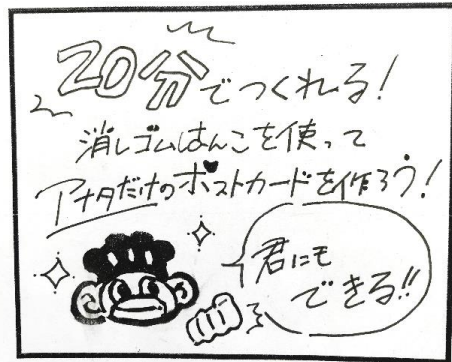 20分でつくれる！
消しゴムはんこを使って
アナタだけのポストカードを作ろう！
君にも
できる!!